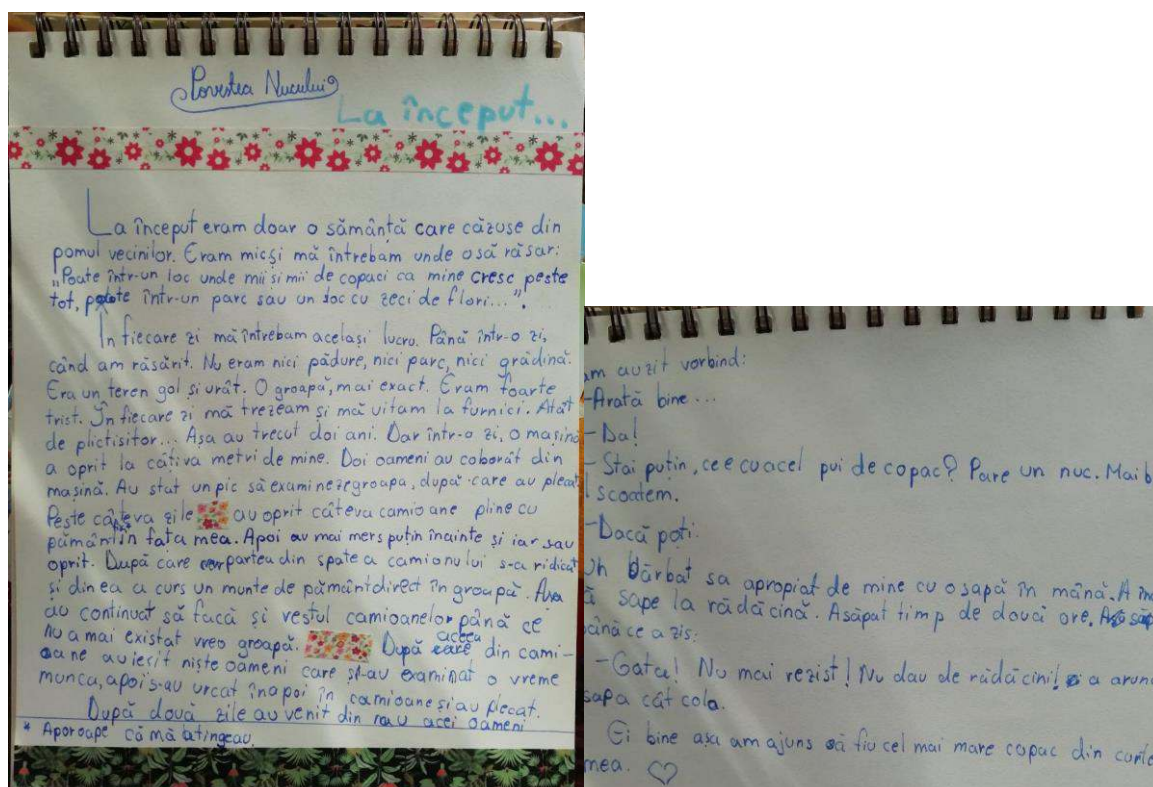 Povestea Nucului
La început...
La început eram doar o sămânță care căzuse din
pomul vecinilor. Eram micși mă întrebam unde osă răsar:
„Poate într-un loc unde mii și mii de copaci ca mine cresc peste
tot, poate într-un parc sau un loc cu zeci de flori...".
În fiecare zi mă întrebam același lucru. Până într-o zi,
când am răsărit. Nu eram nici pădure, nici parc, nici grădină.
Era un teren gol și urât. O groapă, mai exact. Eram foarte
trist. În fiecare zi mă trezeam și mă uitam la furnici. Atât
de plictisitor... Așa au trecut doi ani. Dar într-o zi, o mașină
a oprit la câtiva metri de mine. Doi oameni au coborât din
mașină. Au stat un pic să examinezegroapa, după care au plecat.
Peste câteva zile au oprit câteva camioane pline cu
pământ în fața mea. Apoi au mai mers puțin înainte și iar sau
oprit. După care partea din spate a camionului s-a ridicat
și din ea a curs un munte de pământ direct în groapă. Așa
au continuat să facă și vestul camioanelor până ce
nu a mai existat vreo groapă. După aceea din cami-
oane au iesit niște oameni care și-au examinat o vreme
munca, apoi s-au urcat înapoi în camioane și au plecat.
După două zile au venit din nou acei oameni
* Aporoape că mă atingeau.
am auzit vorbind:
-Arată bine...
-Da!
-Stai puțin, ce e cu acel pui de copac? Pare un nuc. Mai b
l scoatem.
-Dacă poți.
Un bărbat sa apropiat de mine cu o sapă în mână. A în
ă sape la rădăcină. Asăpat timp de două ore. A săp
până ce a zis:
-Gata! Nu mai rezist! Nu dau de rădăcini! a arun
sapa cât cola.
Ei bine așa am ajuns să fiu cel mai mare copac din curte
mea.